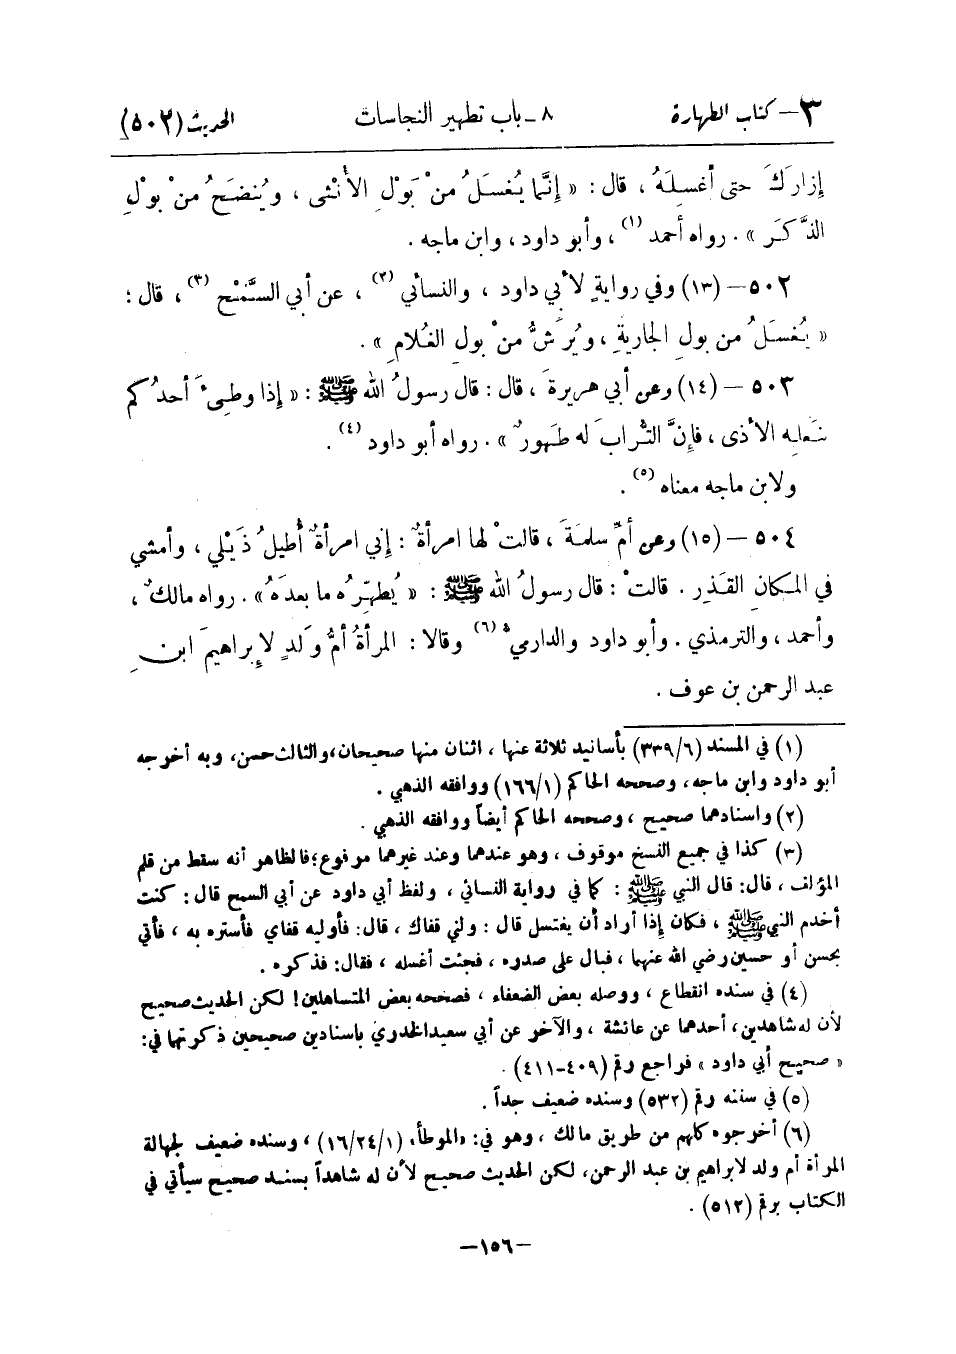 ٣ – كتاب الطهارة ٨ ـ باب تطهير النجاسات الحديث (٥٠٢)
إزارَكَ حتى أغسِلَهُ ، قال : « إنَّما يُغسَلُ منْ بَوْلِ الأنْثى ، ويُنضَحُ منْ بولِ
الذَّكَرِ » . رواه أحمد (١) ، وأبو داود ، وابن ماجه .
٥٠٢ – (١٣) وفي روايةٍ لأبي داود ، والنسائي (٢) ، عن أبي السَّمْح (٣) ، قال :
« يُغسَلُ من بولِ الجاريةِ ، ويُرَشُّ منْ بولِ الغُلامِ » .
٥٠٣ – (١٤) وعن أبي هريرةَ ، قال : قال رسولُ الله ﷺ : « إذا وطىءَ أحدُكم
بنَعلِه الأذى ، فإنَّ التُّرابَ له طَهورٌ » . رواه أبو داود (٤) .
ولابن ماجه معناه (٥) .
٥٠٤ – (١٥) وعن أمِّ سلمةَ ، قالتْ لها امرأةٌ : إني امرأةٌ أُطيلُ ذَيْلي ، وأمشي
في المكانِ القَذِرِ . قالتْ : قال رسولُ الله ﷺ : « يُطهِّرُه ما بعدَهُ » . رواه مالكٌ ،
وأحمد ، والترمذي . وأبو داود والدارميُّ (٦) وقالا : المرأةُ أمُّ وَلدٍ لإبراهيمَ ابنِ
عبد الرحمن بن عوف .
(١) في المسند (٣٣٩/٦) بأسانيد ثلاثة عنها ، اثنان منها صحيحان، والثالث حسن، وبه أخرجه
أبو داود وابن ماجه، وصححه الحاكم (١٦٦/١) ووافقه الذهبي .
(٢) واسنادهما صحيح ، وصححه الحاكم أيضاً ووافقه الذهبي .
(٣) كذا في جميع النسخ موقوف ، وهو عندهما وعند غيرهما مرفوع؛ فالظاهر أنه سقط من قلم
المؤلف ، قال: قال النبي ﷺ : كما في رواية النسائي ، ولفظ أبي داود عن أبي السمح قال : كنت
أخدم النبي ﷺ ، فكان إذا أراد أن يغتسل قال : ولني قفاك ، قال: فأوليه قفاي فأستره به ، فأتي
بحسن أو حسين رضي الله عنهما ، فبال على صدره ، فجئت أغسله ، فقال: فذكره .
(٤) في سنده انقطاع ، ووصله بعض الضعفاء ، فصححه بعض المتساهلين! لكن الحديث صحيح
لأن له شاهدين، أحدهما عن عائشة ، والآخر عن أبي سعيد الخدري باسنادين صحيحين ذكرتها في:
« صحيح أبي داود » فراجع رقم (٤٠٩-٤١١) .
(٥) في سننه رقم (٥٣٢) وسنده ضعيف جداً .
(٦) أخرجوه كلهم من طريق مالك ، وهو في: «الموطأ» (١٦/٢٤/١) ، وسنده ضعيف لجهالة
المرأة أم ولد لابراهيم بن عبد الرحمن، لكن الحديث صحيح لأن له شاهداً بسند صحيح سيأتي في
الكتاب برقم (٥١٢) .
–١٥٦–